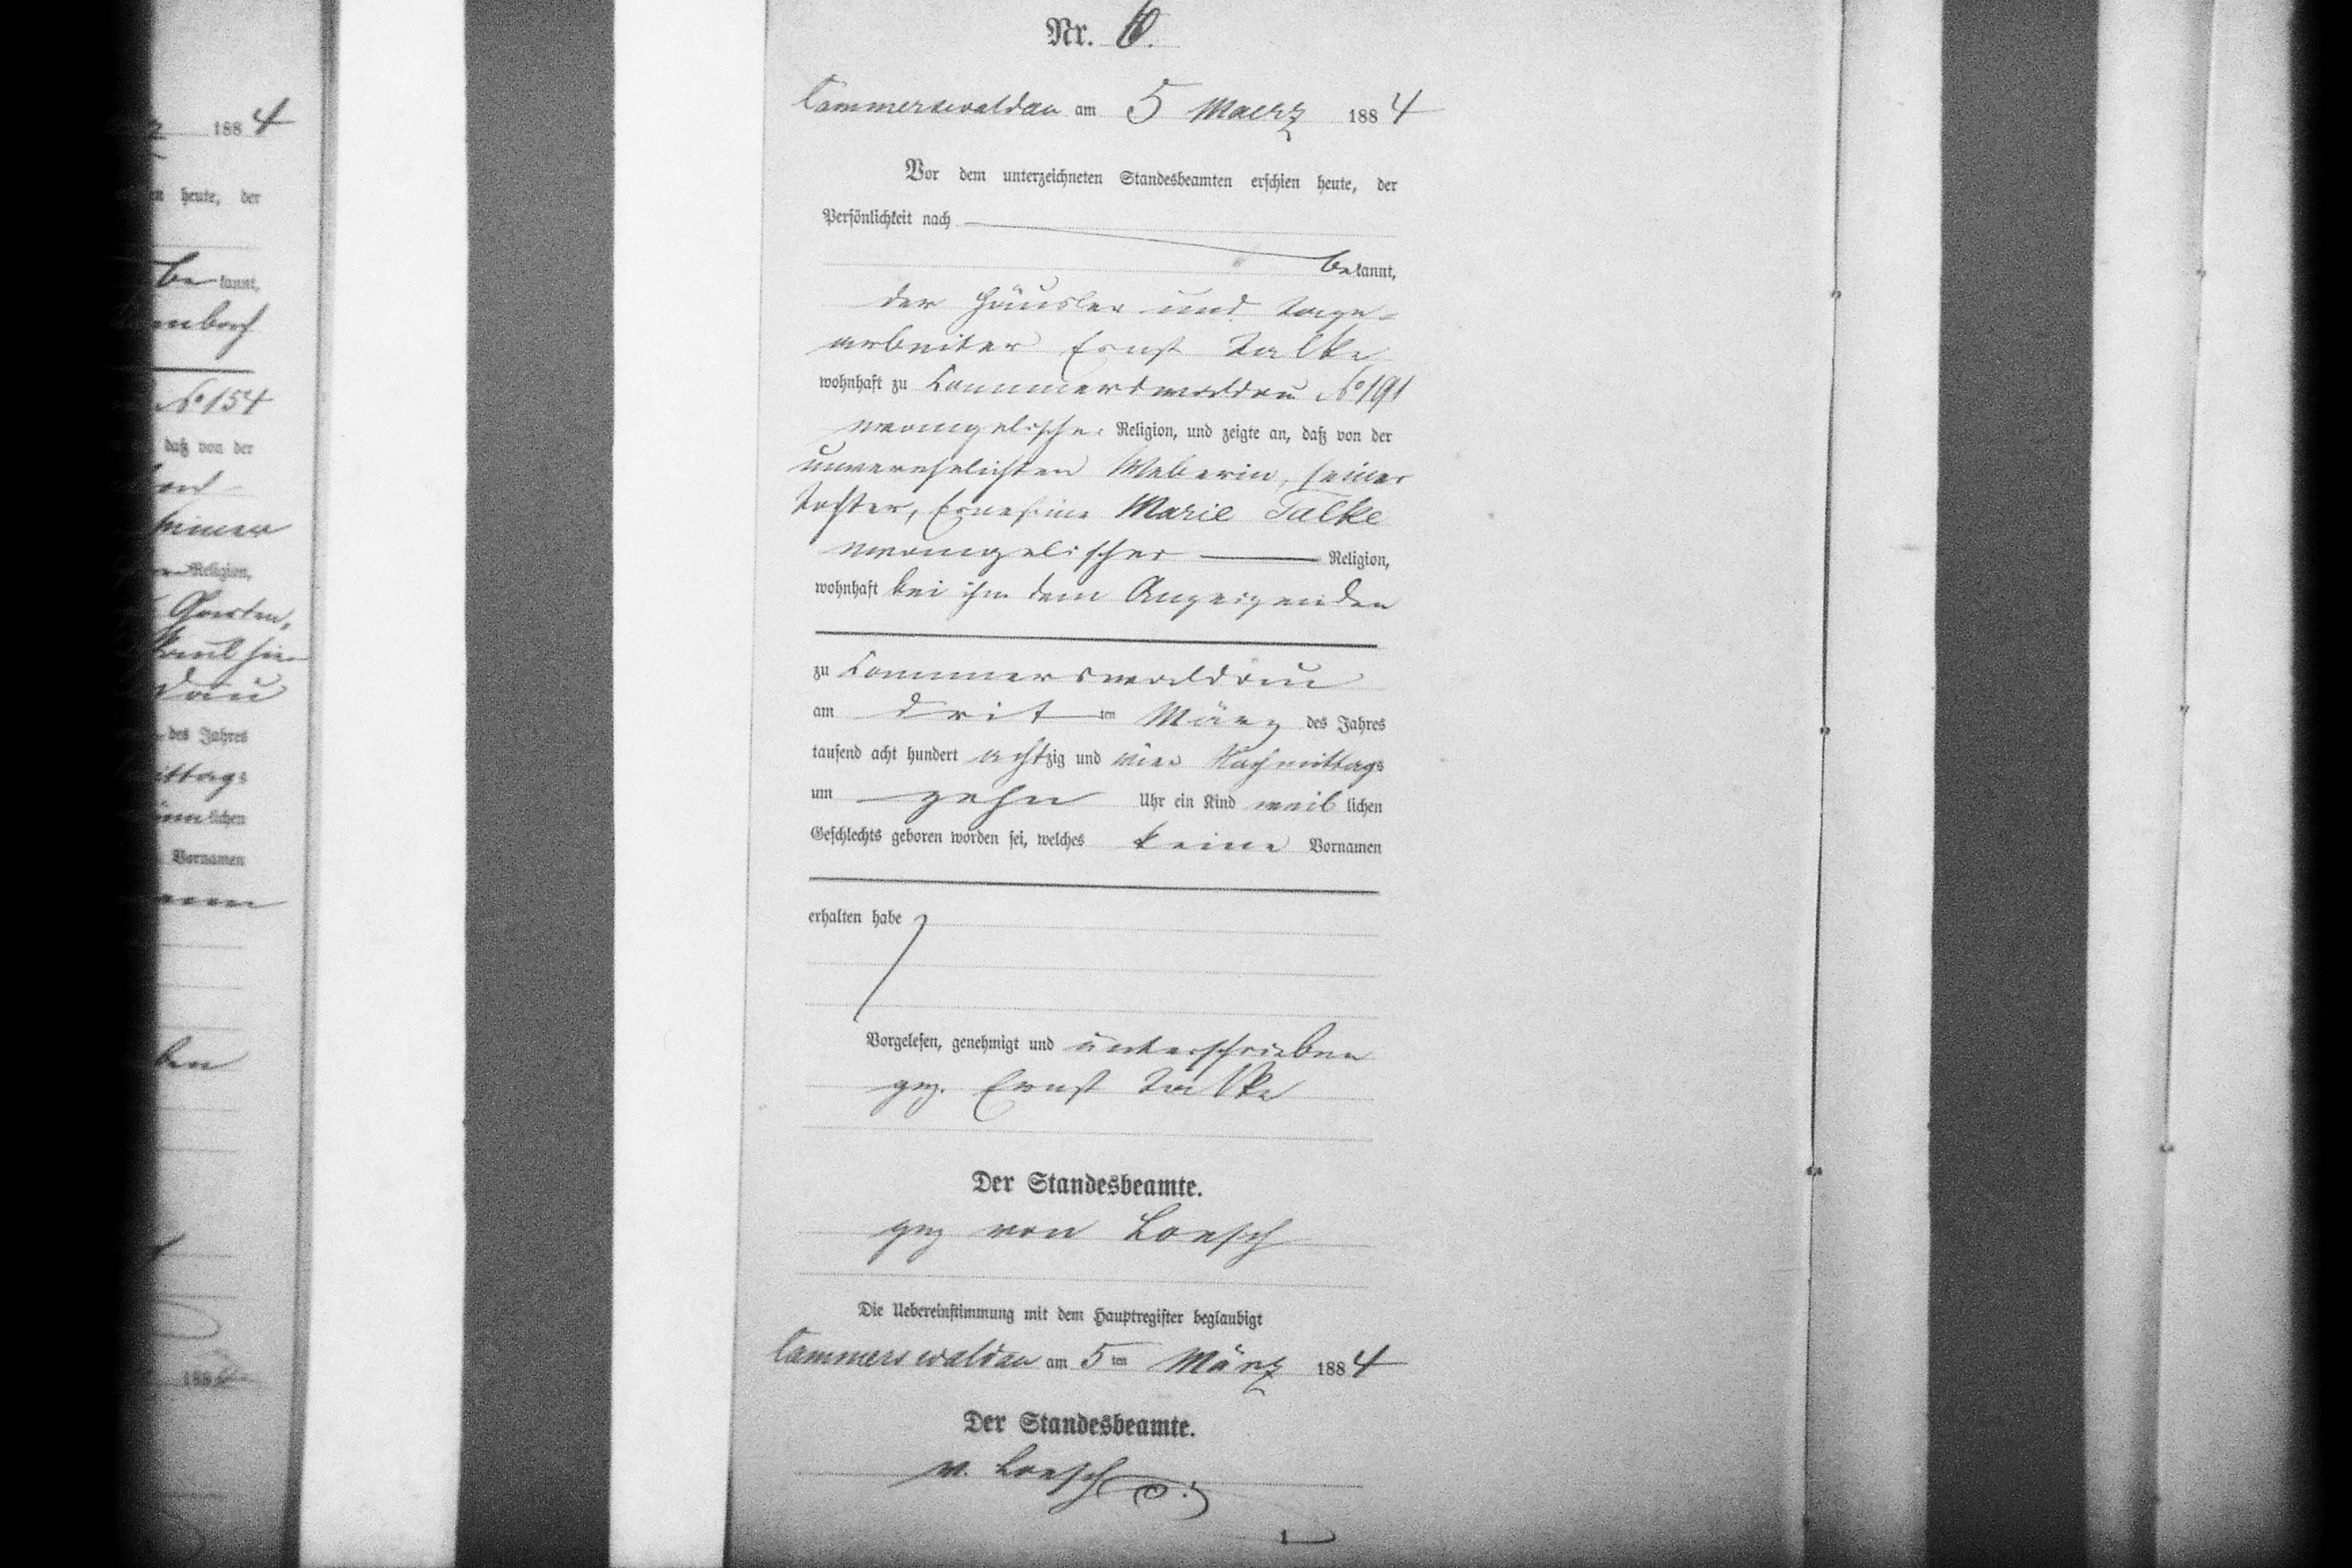 Nr. 6.
Cammerswaldau am 5 Maerz 1884
Vor dem unterzeichneten Standesbeamten erschien heute, der
Persönlichkeit nach
bekannt,
der Häusler und Tage-
arbeiter Ernst Talke
wohnhaft zu Cammerswaldau No 191
evangelischer Religion, und zeigte an, daß von der
unverehelichten Weberin, seiner
Tochter, Ernestine Marie Talke
evangelischer Religion,
wohnhaft bei ihm dem Anzeigenden
zu Cammerswaldau
am dritten März des Jahres
tausend acht hundert achtzig und vier Nachmittags
um zehn Uhr ein Kind weiblichen
Geschlechts geboren worden sei, welches keine Vornamen
erhalten habe
Vorgelesen, genehmigt und unterschrieben
gez. Ernst Talke
Der Standesbeamte.
gez von Loesch
Die Uebereinstimmung mit dem Hauptregister beglaubigt
Cammerswaldau am 5ten März 1884
Der Standesbeamte.
v. Loesch
188 4
heute, der
bekannt,
No 154
daß von der
Religion,
des Jahres
lichen
Vornamen
188